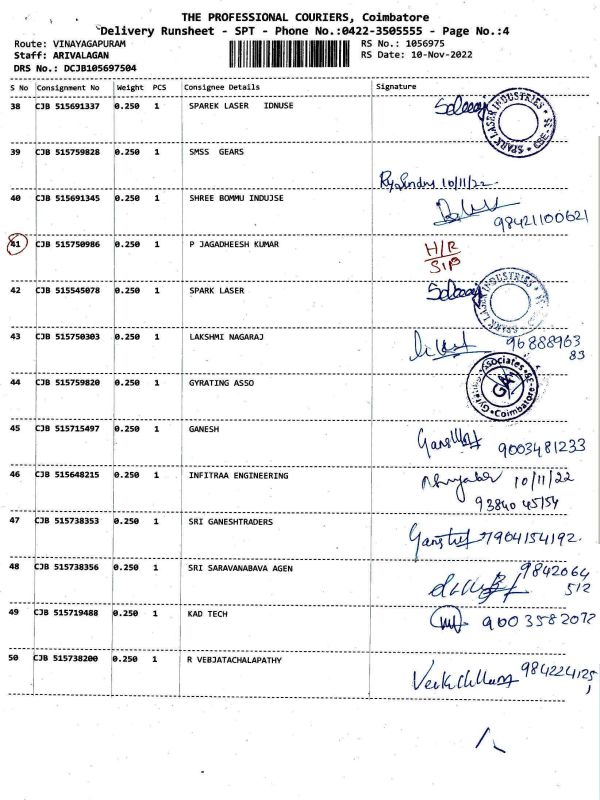 THE PROFESSIONAL COURIERS, Coimbatore
Delivery Runsheet - SPT - Phone No.:0422-3505555 - Page No.:4
Route: VINAYAGAPURAM RS No.: 1056975
Staff: ARIVALAGAN RS Date: 10-Nov-2022
DRS No.: DCJB105697504
S No Consignment No Weight PCS Consignee Details Signature
38 CJB 515691337 0.250 1 SPAREK LASER IDNUSE
SPARK LASER INDUSTRIES CBE-35
39 CJB 515759828 0.250 1 SMSS GEARS
10/11/22
40 CJB 515691345 0.250 1 SHREE BOMMU INDUJSE
98421100621
41 CJB 515750986 0.250 1 P JAGADHEESH KUMAR H/R
SIP
42 CJB 515545078 0.250 1 SPARK LASER
SPARK LASER INDUSTRIES
43 CJB 515750303 0.250 1 LAKSHMI NAGARAJ 96888963
83
44 CJB 515759820 0.250 1 GYRATING ASSO
Gyrating Associates Coimbatore GA
45 CJB 515715497 0.250 1 GANESH
9003481233
46 CJB 515648215 0.250 1 INFITRAA ENGINEERING 10/11/22
93840 45154
47 CJB 515738353 0.250 1 SRI GANESHTRADERS
7904154192
48 CJB 515738356 0.250 1 SRI SARAVANABAVA AGEN 9842064
512
49 CJB 515719488 0.250 1 KAD TECH 9003582072
50 CJB 515738200 0.250 1 R VEBJATACHALAPATHY
984224125